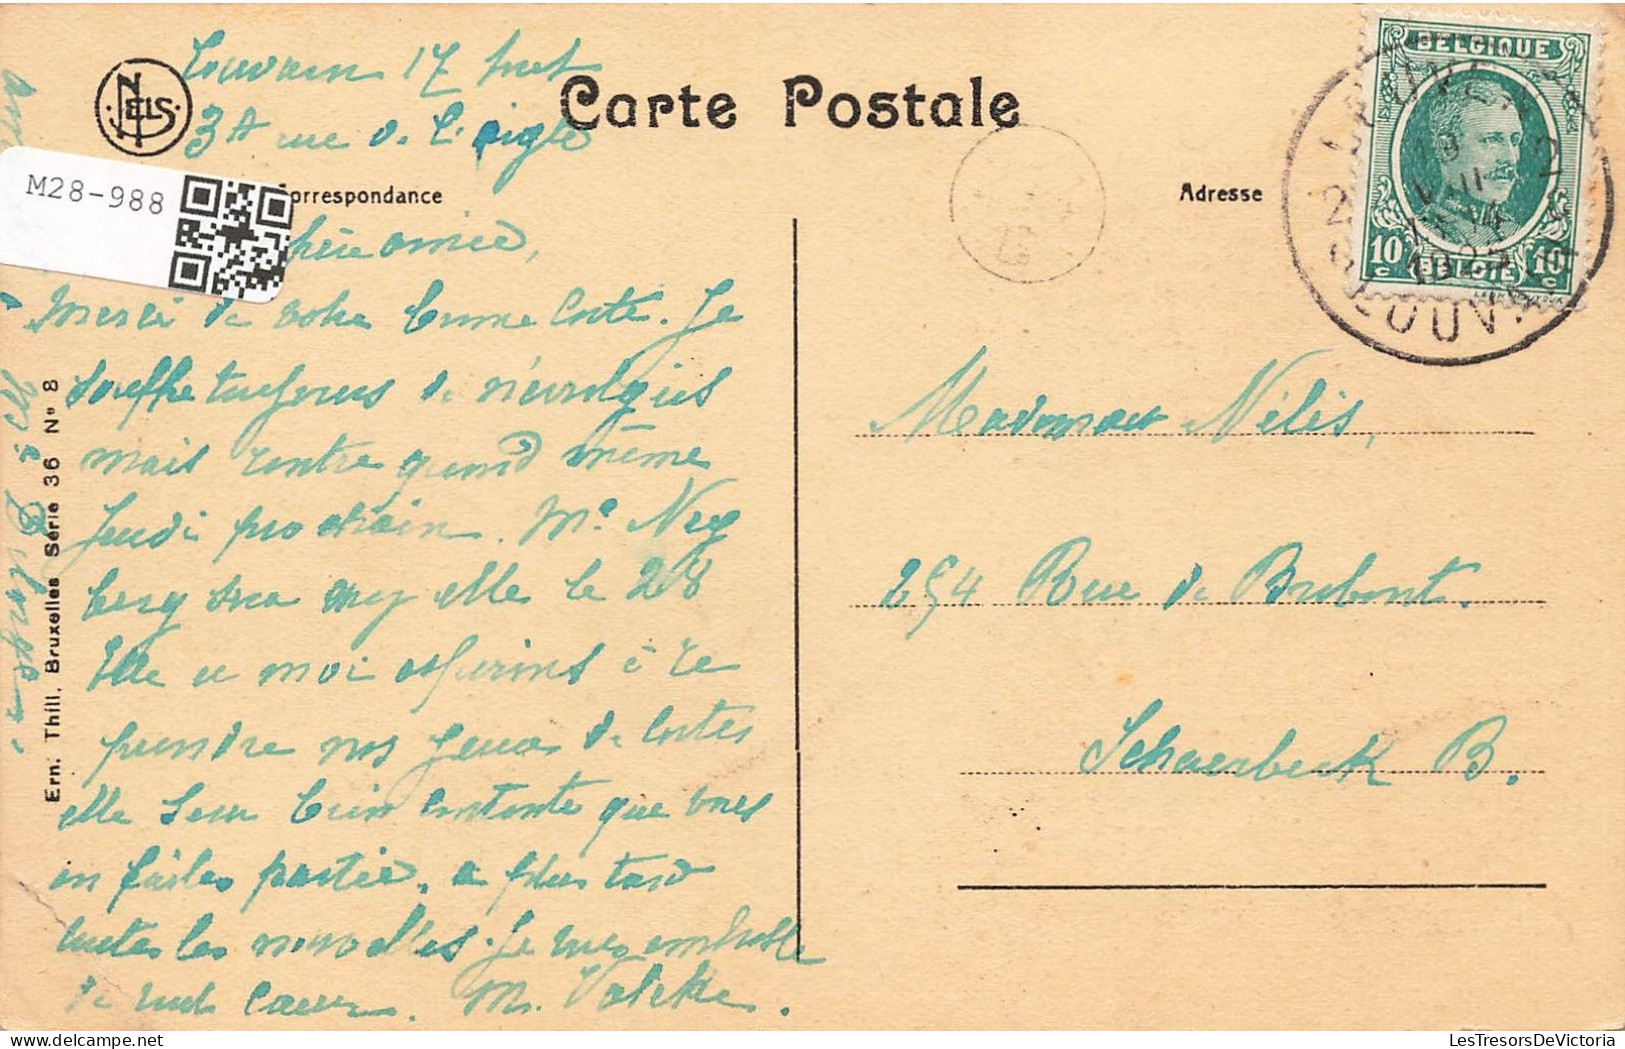 Louvain 17 Août
34 rue de l'aigle
NELS
Carte Postale
M28-988
Correspondance
Adresse
chère amie,
Merci de votre bonne Carte. Je
souffre toujours de névralgies
mais rentre quand même
jeudi prochain. Me Ney
berg sera chez elle le 28
Elle et moi espérons à re
prendre nos jeux de Cartes
elle sera bien contente que vous
en faites partie, a plus tard
toutes les nouvelles. Je vous embrasse
de tout cœur. M. Valcke.
Ern. Thill, Bruxelles Série 36 N° 8
BELGIQUE
10 c BELGIE 10 c
LEUVEN
LOUVAIN
Madame Nélis,
254 Rue de Brabant.
Schaerbeek B.
LesTresorsDeVictoria